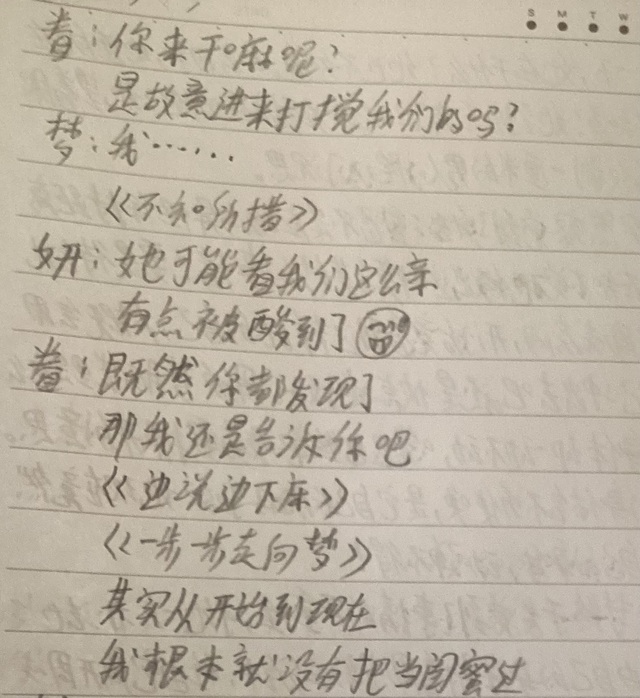 S M T W
眷：你来干嘛呢？
是故意进来打搅我们的吗？
梦：我……
《不知所措》
妍：她可能看我们这么亲
有点被酸到了
眷：既然你都发现了
那我还是告诉你吧
《边说边下床》
《一步一步走向梦》
其实从开始到现在
我根本就没有把当闺蜜过